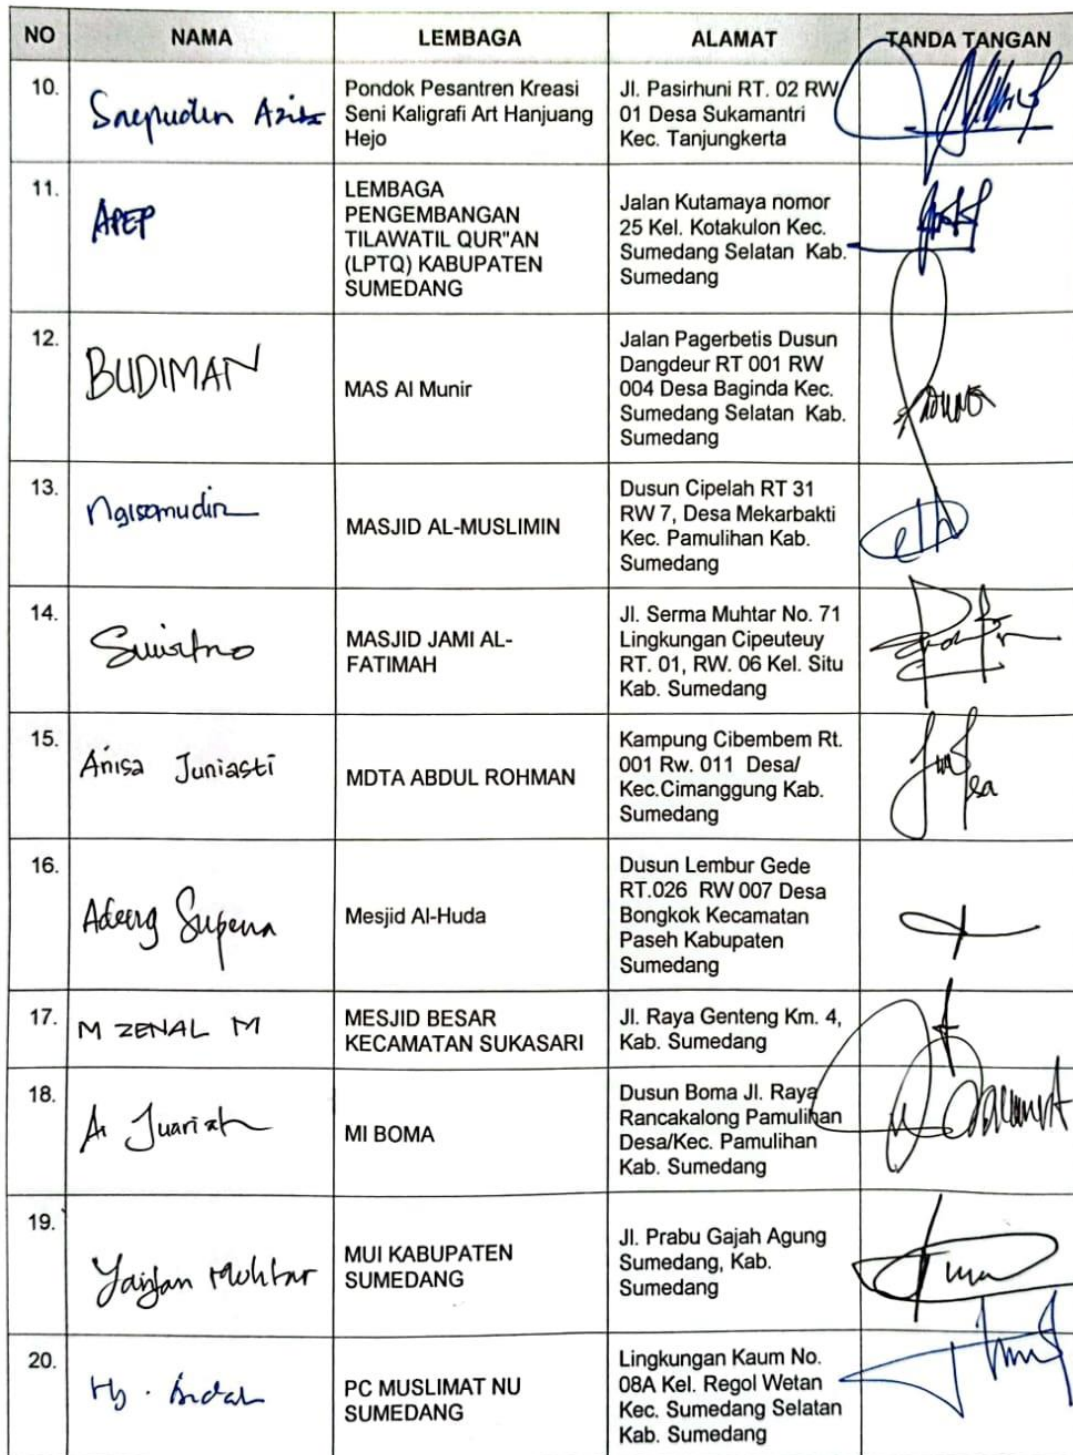 NO NAMA LEMBAGA ALAMAT TANDA TANGAN
10. Saepudin Aziz
Pondok Pesantren Kreasi
Seni Kaligrafi Art Hanjuang
Hejo
Jl. Pasirhuni RT. 02 RW
01 Desa Sukamantri
Kec. Tanjungkerta
11. APEP
LEMBAGA
PENGEMBANGAN
TILAWATIL QUR"AN
(LPTQ) KABUPATEN
SUMEDANG
Jalan Kutamaya nomor
25 Kel. Kotakulon Kec.
Sumedang Selatan Kab.
Sumedang
12. BUDIMAN
MAS Al Munir
Jalan Pagerbetis Dusun
Dangdeur RT 001 RW
004 Desa Baginda Kec.
Sumedang Selatan Kab.
Sumedang
13. Ngisomudin
MASJID AL-MUSLIMIN
Dusun Cipelah RT 31
RW 7, Desa Mekarbakti
Kec. Pamulihan Kab.
Sumedang
14.
MASJID JAMI AL-
FATIMAH
Jl. Serma Muhtar No. 71
Lingkungan Cipeuteuy
RT. 01, RW. 06 Kel. Situ
Kab. Sumedang
15. Anisa Juniasti
MDTA ABDUL ROHMAN
Kampung Cibembem Rt.
001 Rw. 011 Desa/
Kec.Cimanggung Kab.
Sumedang
16. Supena
Mesjid Al-Huda
Dusun Lembur Gede
RT.026 RW 007 Desa
Bongkok Kecamatan
Paseh Kabupaten
Sumedang
17. M ZENAL M
MESJID BESAR
KECAMATAN SUKASARI
Jl. Raya Genteng Km. 4,
Kab. Sumedang
18. Ai Juariah
MI BOMA
Dusun Boma Jl. Raya
Rancakalong Pamulihan
Desa/Kec. Pamulihan
Kab. Sumedang
19. Mohtar
MUI KABUPATEN
SUMEDANG
Jl. Prabu Gajah Agung
Sumedang, Kab.
Sumedang
20. Hj. Indah
PC MUSLIMAT NU
SUMEDANG
Lingkungan Kaum No.
08A Kel. Regol Wetan
Kec. Sumedang Selatan
Kab. Sumedang